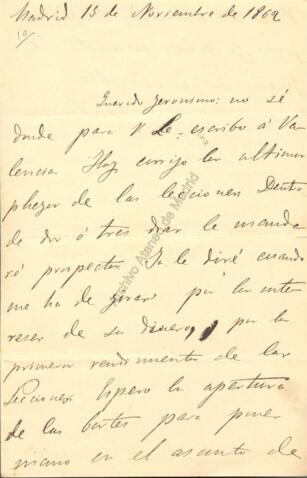 Madrid 15 de Noviembre de 1862
10/
Querido Jeronimo: no sé
donde para V. Le escribo á Va-
lencia. Hoy corrijo los ultimos
pliegos de las lecciones. Dentro
de dos ó tres dias le manda-
ré prospectos. Ya le diré cuando
me ha de girar por los inte-
reses de su dinero, y por los
primeros rendimientos de las
Lecciones. Espero la apertura
de las Cortes para poner
mano en el asunto de
Archivo Ateneo de Madrid